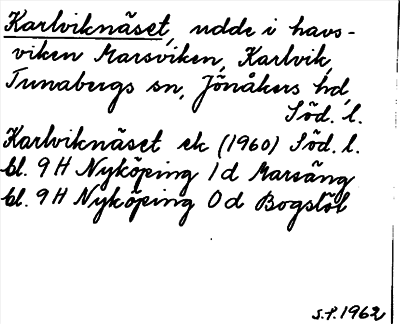 Karlviknäset, udde i havs-
viken Marsviken, Karlvik,
Tunabergs sn, Jönåkers hd,
Söd. l.
Karlviknäset ek (1960) Söd. l.
bl. 9 H Nyköping 1 d Marsäng
bl. 9 H Nyköping 0 d Bogslöt
S.P. 1962